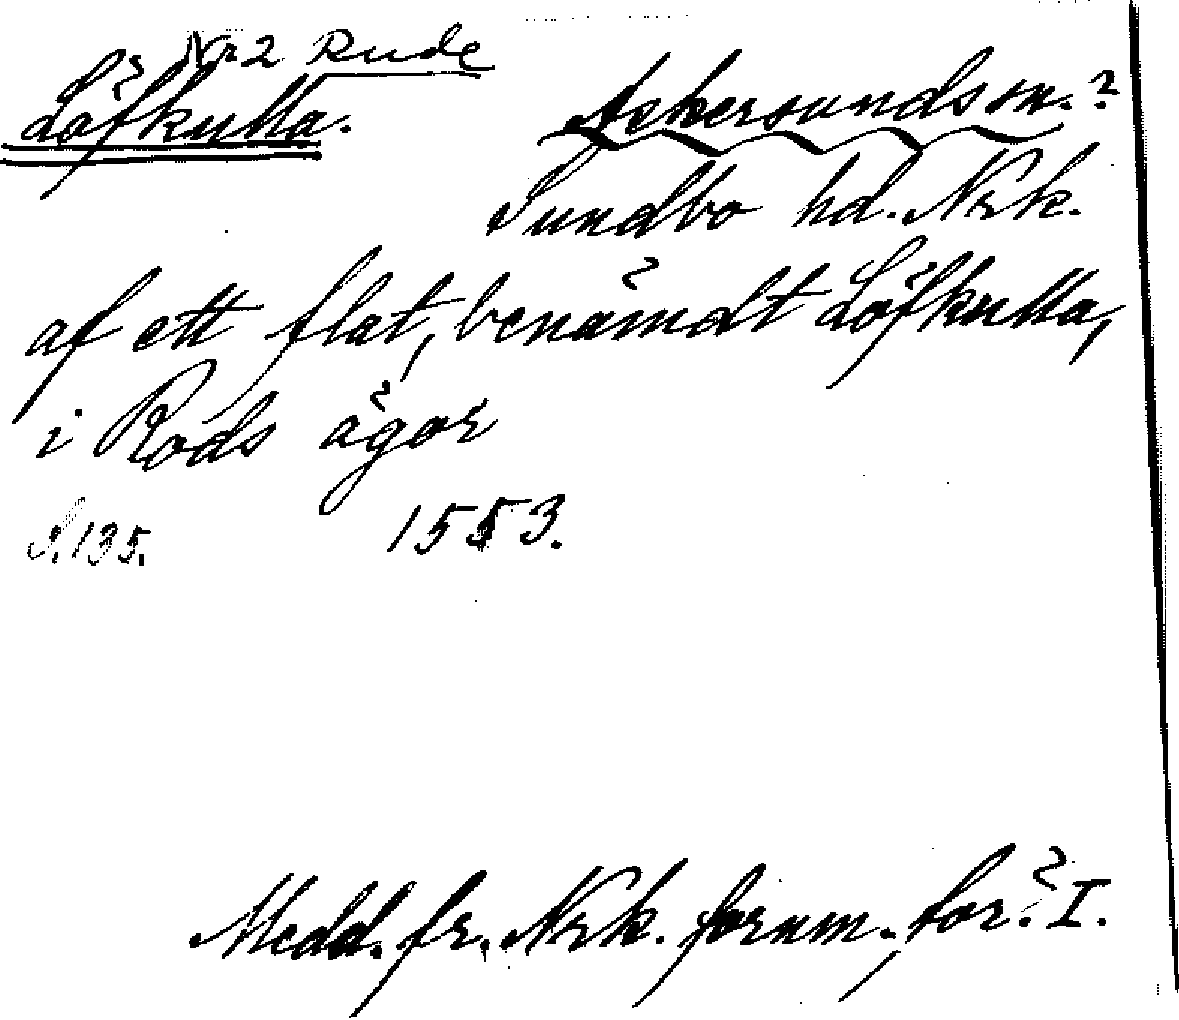 Nr 2 Rude
Löfkulla.
Askersunds sn.?
Sundbo hd. Nrk.
af ett flat, benämdt Löfkulla,
i Rods ägor
S. 135. 1553.
Medd. fr. Nrk. fornm. för. I.